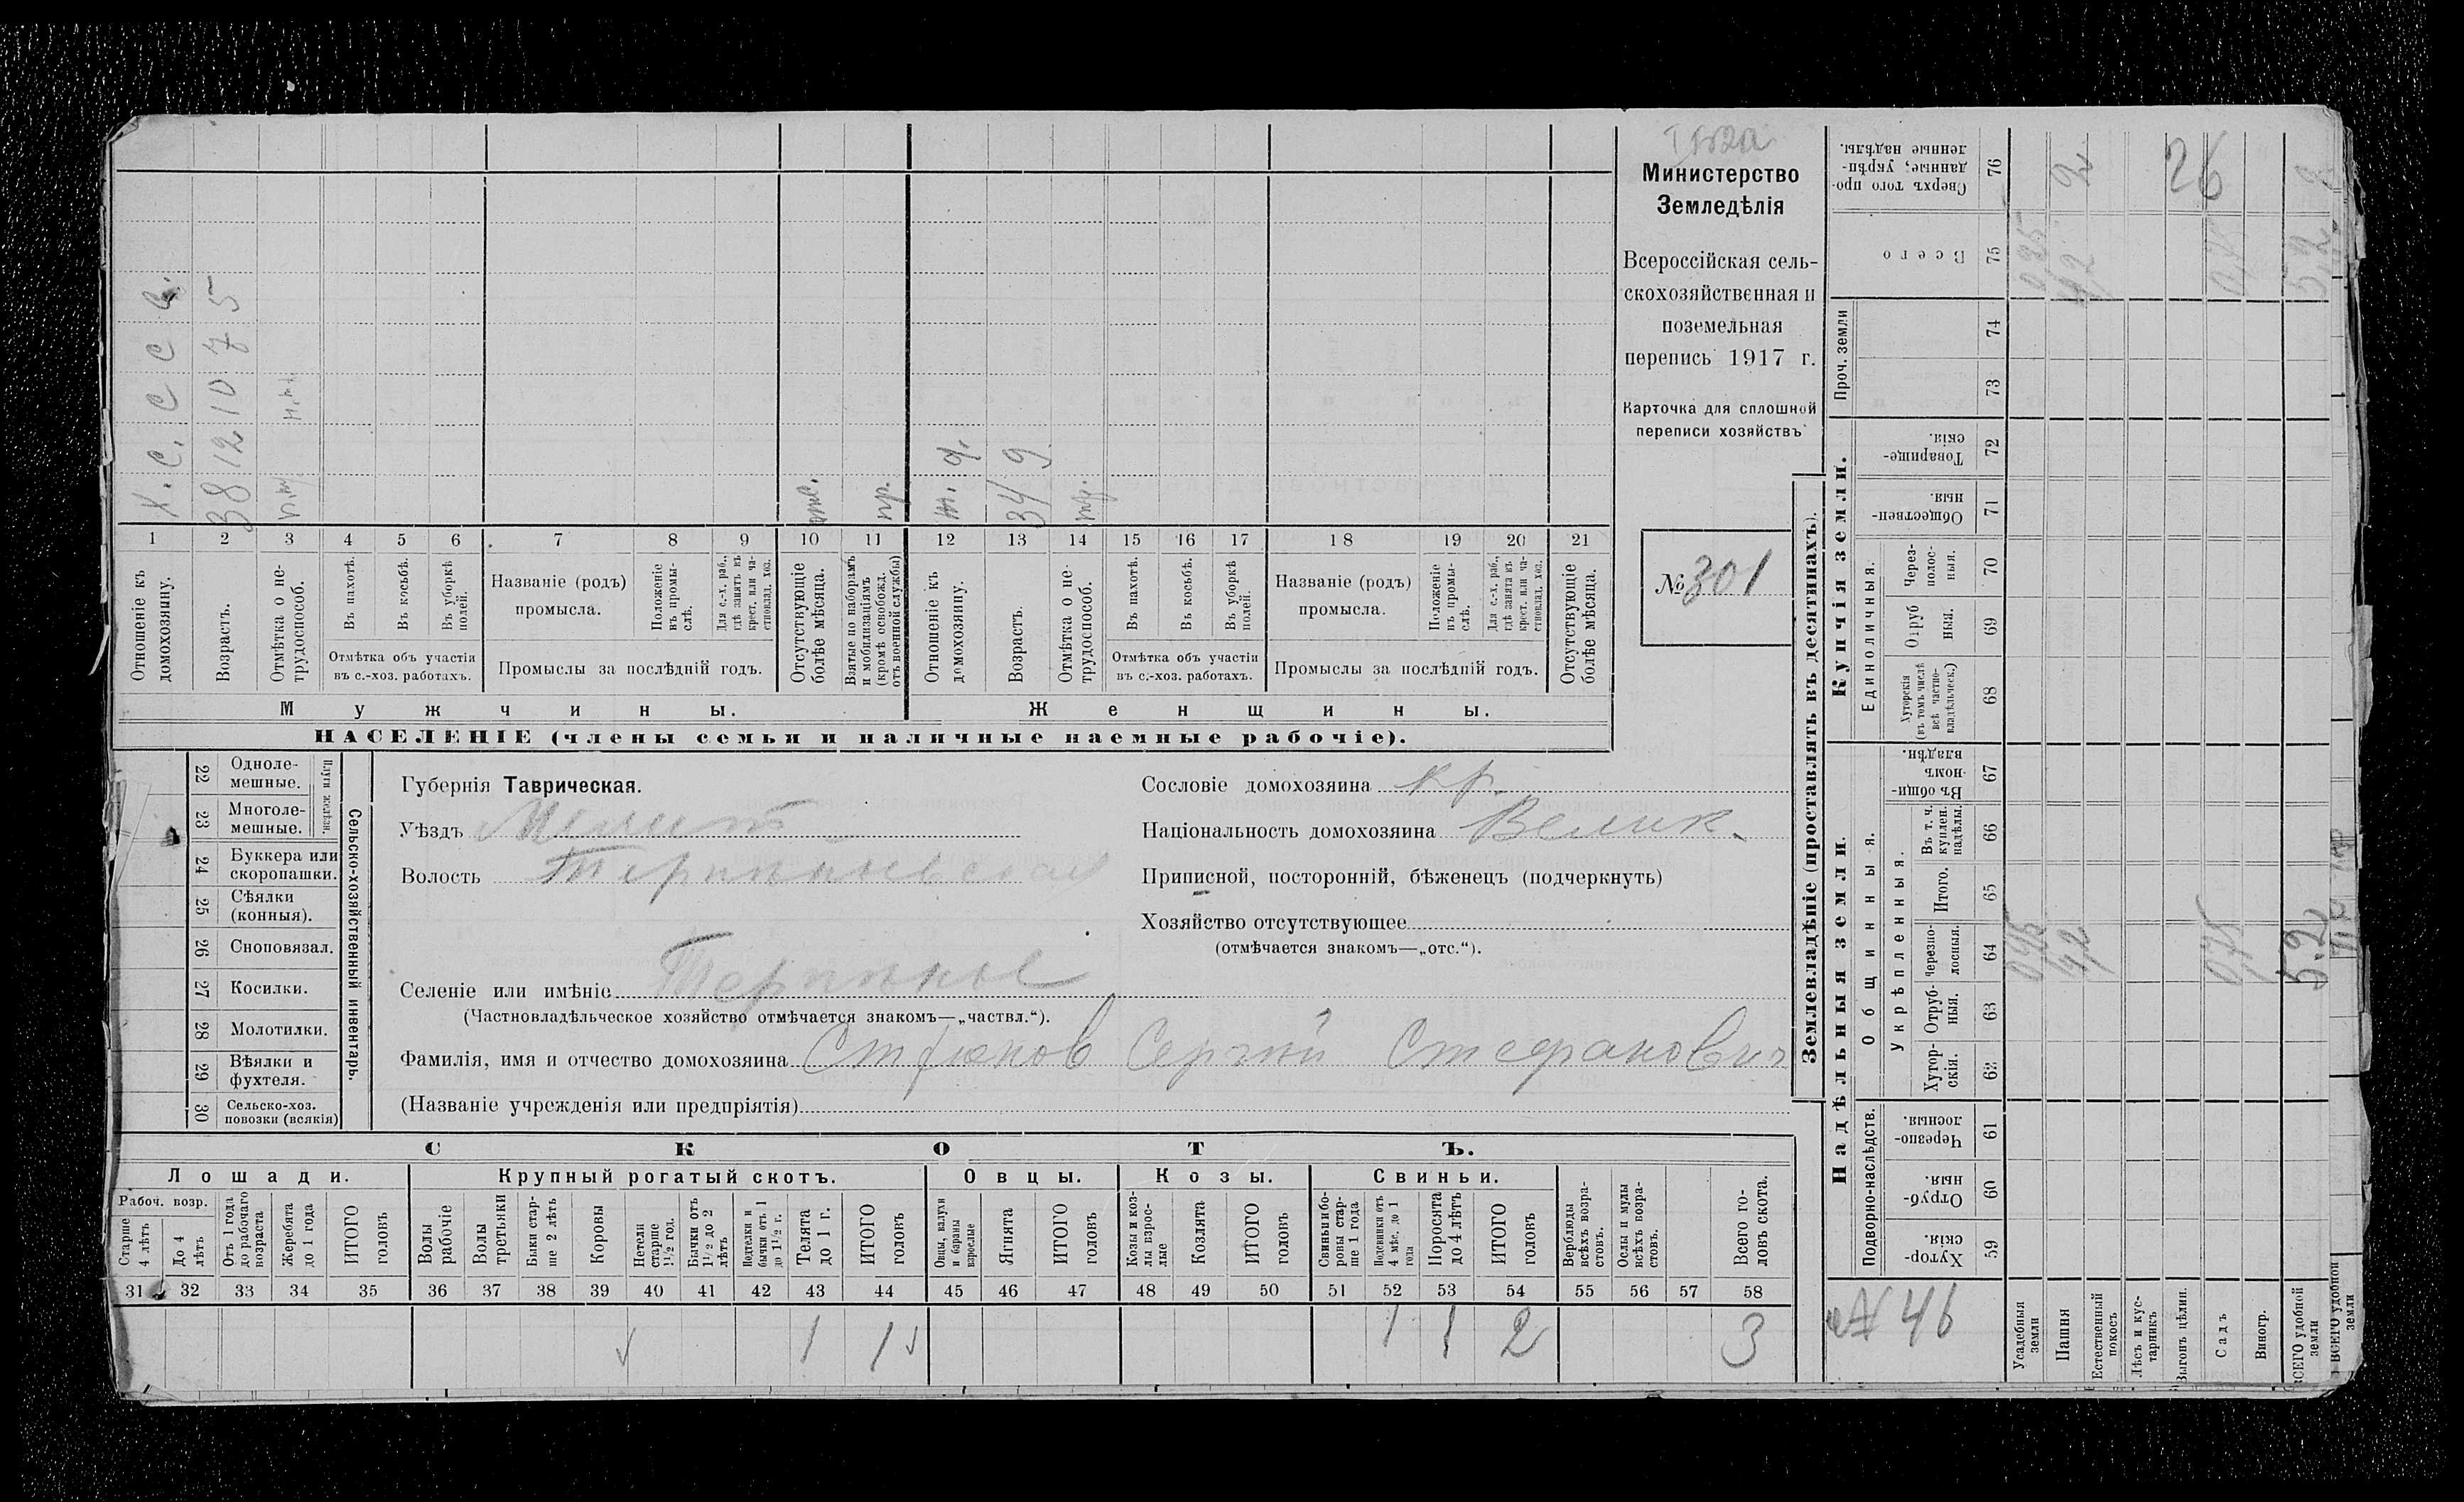 Министерство
Земледѣлія
Всероссійская сель-
скохозяйственная и
поземельная
перепись 1917 г.
Карточка для сплошной
переписи хозяйствъ
№ 301
Х. С. С С С.
38 12 10 7 5
отс.
пр.
ж. д.
34 9
1 2 3 4 5 6 7 8 9 10 11 12 13 14 15 16 17 18 19 20 21
Отношеніе къ домохозяину.
Возрастъ.
Отмѣтка о не-трудоспособ.
Въ пахотѣ.
Въ косьбѣ.
Въ уборкѣ полей.
Отмѣтка объ участіи
въ с.-хоз. работахъ.
Названіе (родъ)
промысла.
Положеніе въ промы-слѣ.
Для с.-х. раб., гдѣ занятъ въ крест. или ча-стновлад. хоз.
Промыслы за послѣдній годъ.
Отсутствующіе болѣе мѣсяца.
Взятые по наборамъ и мобилизаціямъ (кромѣ освобожд. отъ военной службы)
Отношеніе къ домохозяину.
Возрастъ.
Отмѣтка о не-трудоспособ.
Въ пахотѣ.
Въ косьбѣ.
Въ уборкѣ полей.
Отмѣтка объ участіи
въ с.-хоз. работахъ.
Названіе (родъ)
промысла.
Положеніе въ промы-слѣ.
Для с.-х. раб., гдѣ занята въ крест. или ча-стновлад. хоз.
Промыслы за послѣдній годъ.
Отсутствующіе болѣе мѣсяца.
Мужчины.
Женщины.
НАСЕЛЕНІЕ (члены семьи и наличные наемные рабочіе).
22 Одноле-мешные.
23 Многоле-мешные.
Плуги желѣзн.
24 Буккера или скоропашки.
25 Сѣялки (конныя).
26 Сноповязал.
27 Косилки.
28 Молотилки.
29 Вѣялки и фухтеля.
30 Сельско-хоз. повозки (всякія)
Сельско-хозяйственный инвентарь.
Губернія Таврическая.
Уѣздъ Мелит
Волость
Селеніе или имѣніе
(Частновладѣльческое хозяйство отмѣчается знакомъ—„частвл.“).
Фамилія, имя и отчество домохозяина Стрюков Сергѣй Стефанович
(Названіе учрежденія или предпріятія)
Сословіе домохозяина кр.
Національность домохозяина Велик.
Приписной, посторонній, бѣженецъ (подчеркнуть)
Хозяйство отсутствующее
(отмѣчается знакомъ—„отс.“).
СКОТЪ.
Лошади. Крупный рогатый скотъ. Овцы. Козы. Свиньи.
Рабоч. возр.
Старше 4 лѣтъ
До 4 лѣтъ
Отъ 1 года до рабочаго возраста
Жеребята до 1 года
ИТОГО головъ
Волы рабочіе
Волы третьяки
Быки стар-ше 2 лѣтъ
Коровы
Нетели старше 1½ год.
Бычки отъ 1½ до 2 лѣтъ
Подтелки и бычки отъ 1 до 1½ г.
Телята до 1 г.
ИТОГО головъ
Овцы, валухи и бараны взрослые
Ягнята
ИТОГО головъ
Козы и коз-лы взрос-лые
Козлята
ИТОГО головъ
Свиньи и бо-ровы стар-ше 1 года
Подсвинки отъ 4 мѣс. до 1 года
Поросята до 4 лѣтъ
ИТОГО головъ
Верблюды всѣхъ возра-стовъ.
Ослы и мулы всѣхъ возра-стовъ.
Всего го-ловъ скота.
31 32 33 34 35 36 37 38 39 40 41 42 43 44 45 46 47 48 49 50 51 52 53 54 55 56 57 58
1 1 1 1 2 3
Землевладѣніе (проставлять въ десятинахъ).
Надѣльныя земли.
Купчія земли.
Проч. земли
Подворно-наслѣдств.
Общинныя.
Укрѣпленныя.
Единоличныя.
Сверхъ того про-данные, укрѣп-ленные надѣлы. 76
Всего 75
74
73
Товарище-скія. 72
Обществен-ныя. 71
Через-полос-ныя. 70
Отруб-ныя. 69
Хуторскія (въ томъ числѣ всѣ частно-владѣльческ.) 68
Въ общи-номъ владѣн. 67
Въ т. ч. куплен. надѣлы. 66
Итого. 65
Черезпо-лосныя. 64
Отруб-ныя. 63
Хутор-скія. 62
Черезпо-лосныя. 61
Отруб-ныя. 60
Хутор-скія. 59
2
26
4,2
5.2
46
Усадебныя земли
Пашня
Естественный покосъ
Лѣсъ и кус-тарникъ
Выгонъ цѣлин.
Садъ
Виногр.
ВСЕГО удобной земли